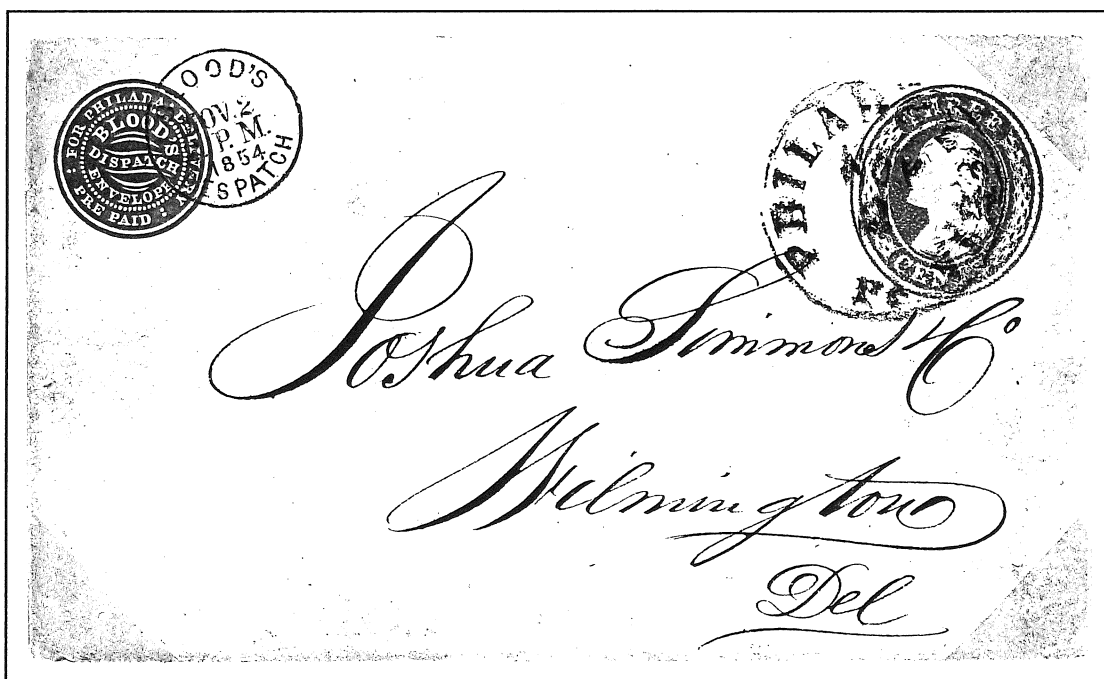 FOR PHILADA. DELIVERY
BLOOD'S
DISPATCH
ENVELOPE
PRE PAID
OOD'S
OV. 2
P. M.
1854
SPATCH
PHILA
THREE
CEN
Joshua Simmons & Co
Wilmington
Del